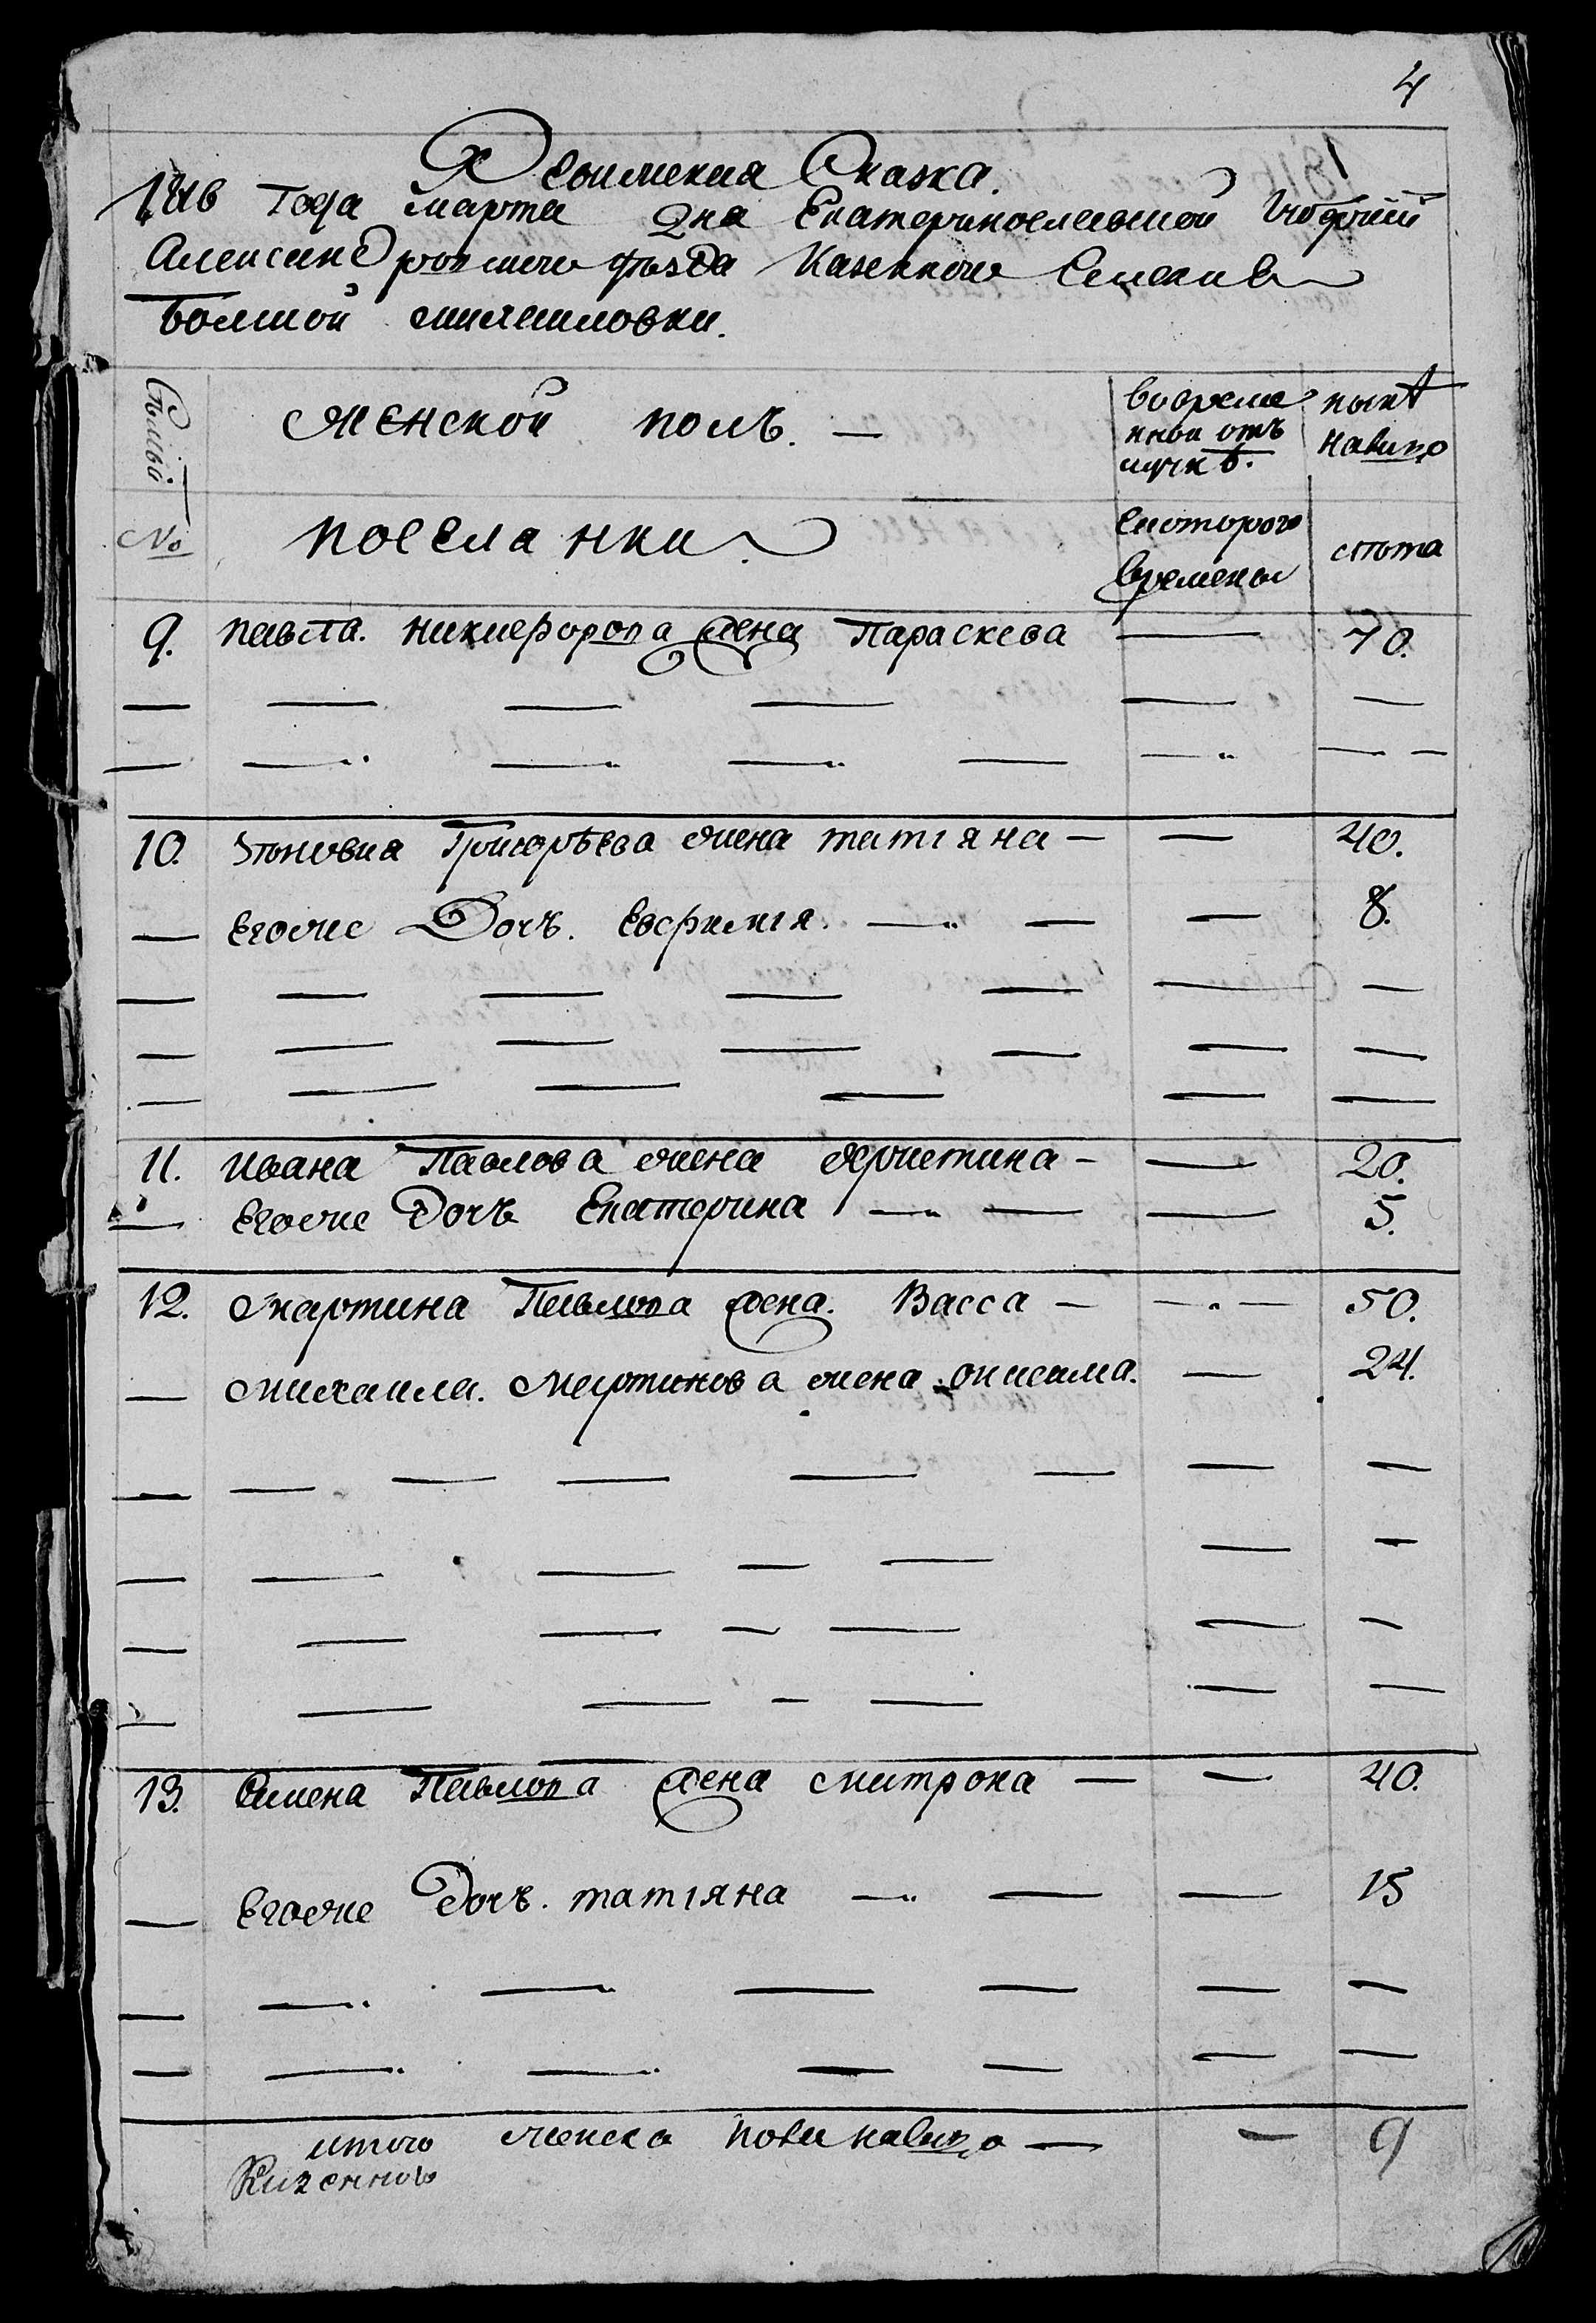 4
Ревижская Сказка.
1816 Года марта дня Екатеринославской Губернии
Александровского уезда Казенного Селения
Болшой михаиловки.
Семьи
женской полъ. —
во време
нной отъ
лучкѣ.
нынѣ
налицо
№
поселянки
скоторого
времены
лѣта
9. павла. никифорова жена Параскева — 70.
10. Зѣновия Григорьева жена татіяна — — 40.
— Егоже Дочъ. Евфимія. — — — 8.
11. ивана Павлова жена христина — — 20.
— Егоже Дочъ Екатерина — — — 5.
12. мартина Павлова жена. Васса — — 50.
— михаила. мартинова жена анисима. — 24.
13. Симена Павлова жена митрона — — 40.
— Егоже Дочъ. татіяна — — — 15
итого женска пола налицо — — 9
Казенного